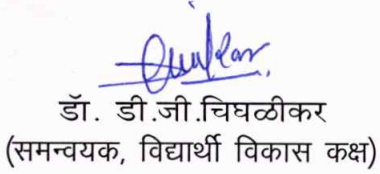 डॉ. डी.जी.चिघळीकर
(समन्वयक, विद्यार्थी विकास कक्ष)